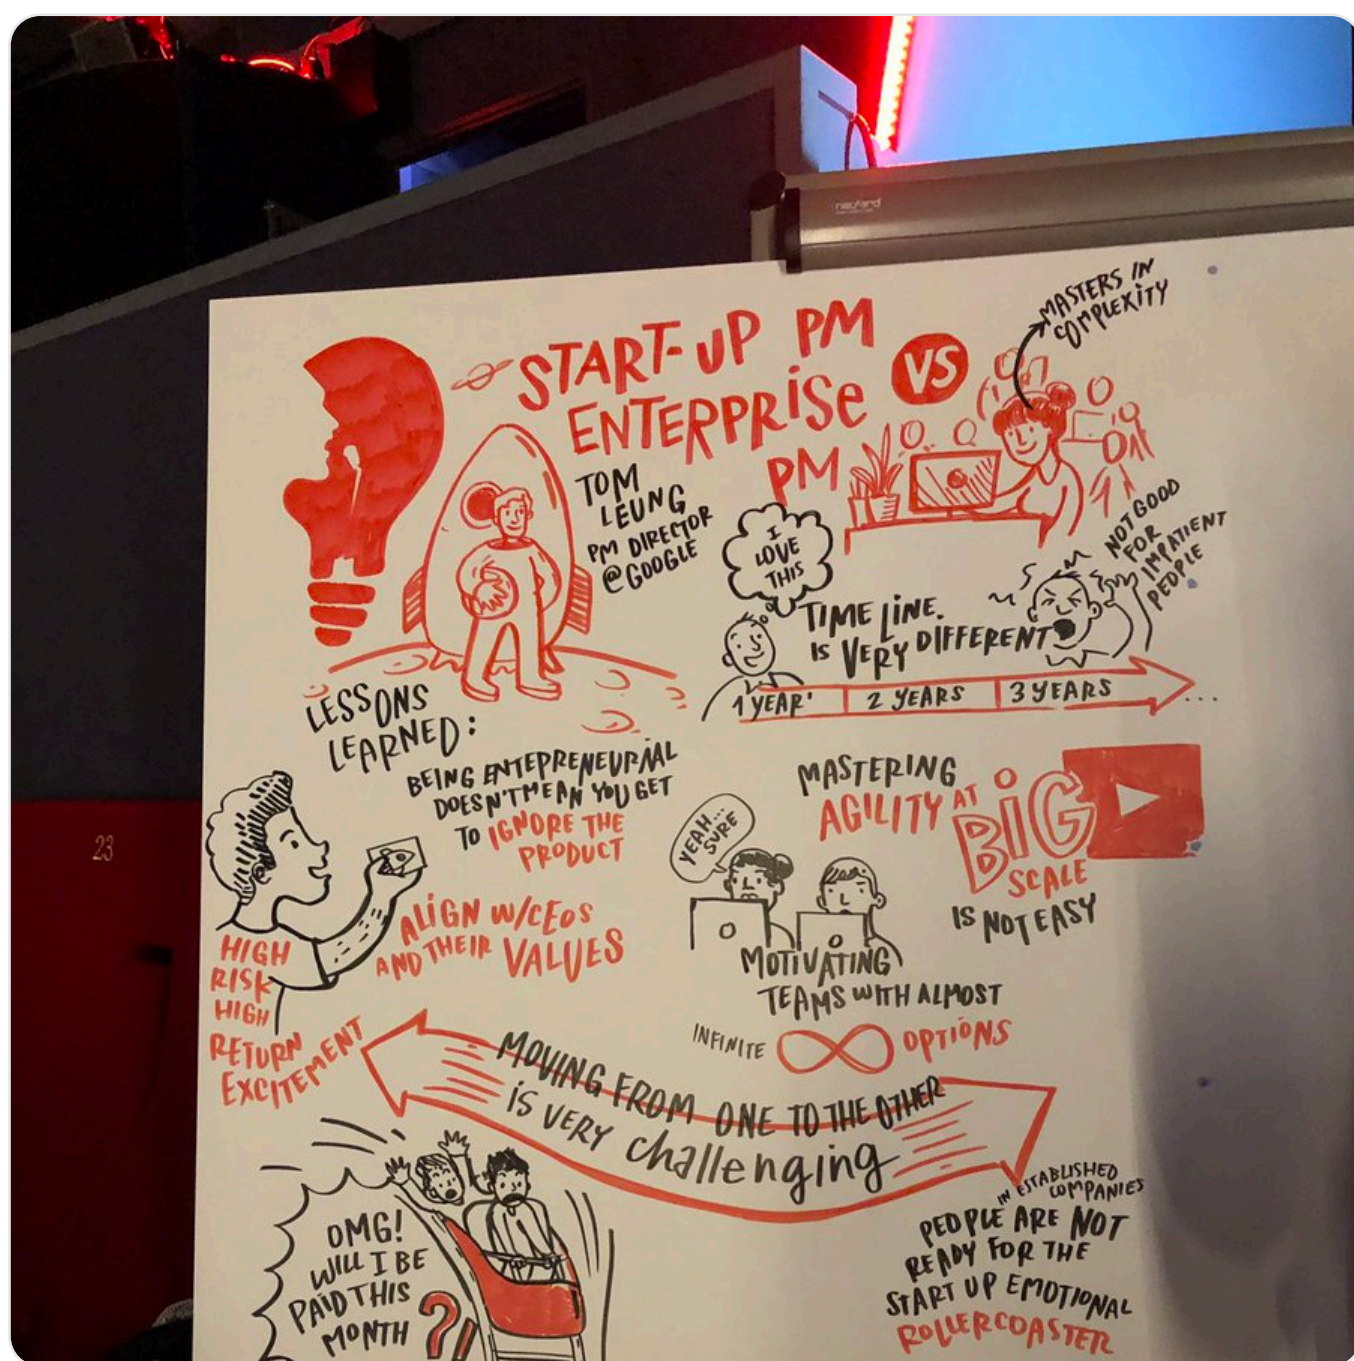 neuland
MASTERS IN
COMPLEXITY
START-UP PM
VS
ENTERPRISE
PM
TOM
LEUNG
PM DIRECTOR
@GOOGLE
I
LOVE
THIS
NOT GOOD
FOR
IMPATIENT
PEOPLE
TIME LINE.
IS VERY DIFFERENT
1 YEAR' 2 YEARS 3 YEARS ...
LESSONS
LEARNED:
BEING ENTEPRENEURIAL
DOESN'T MEAN YOU GET
TO IGNORE THE
PRODUCT
ALIGN W/CEOS
AND THEIR VALUES
HIGH
RISK
HIGH
RETURN
EXCITEMENT
MASTERING
AGILITY AT
BIG
SCALE
IS NOT EASY
YEAH...
SURE
MOTIVATING
TEAMS WITH ALMOST
INFINITE ∞ OPTIONS
MOVING FROM ONE TO THE OTHER
IS VERY challenging
OMG!
WILL I BE
PAID THIS
MONTH ?!
IN ESTABLISHED
COMPANIES
PEOPLE ARE NOT
READY FOR THE
START UP EMOTIONAL
ROLLERCOASTER
23